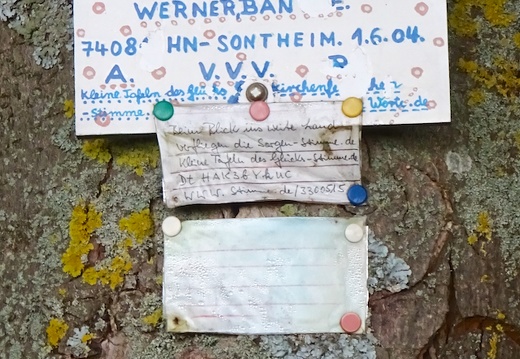 WERNER,BAN E.
7408 HN-SONTHEIM. 1.6.04.
A. V.V.V.
Kleine Tafeln des kirchenfe
-Stimme. Werk.de
Beim Blick ins weite Land
verfliegen die Sorgen-Stimme.de
Kleine Tafeln des Glücks-Stimme.de
Dt HAK36
www.Stimme.de/3309515